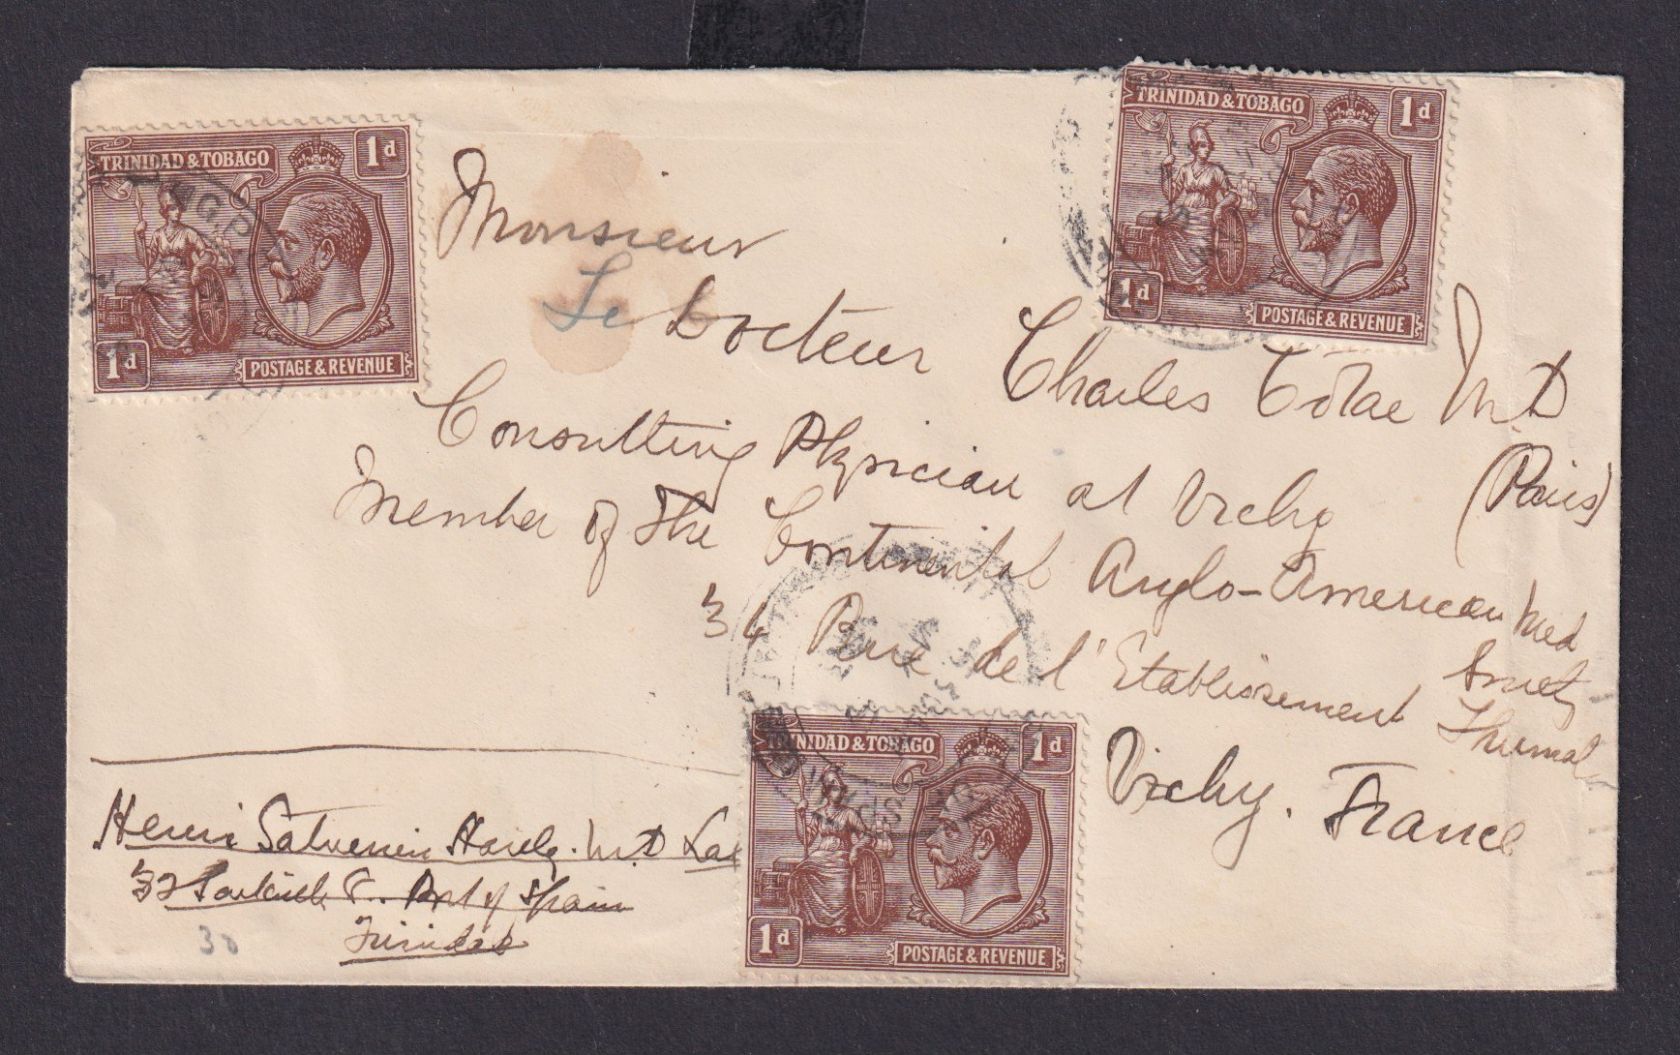 TRINIDAD & TOBAGO 1d
1d POSTAGE & REVENUE
TRINIDAD & TOBAGO 1d
1d POSTAGE & REVENUE
Monsieur
Le Docteur Charles M.D
(Paris)
Consulting Physician at Vichy
Member of the Continental Anglo-American Med
Society
34 Rue de l'Etablissement Thermal
Vichy. France
TRINIDAD & TOBAGO 1d
1d POSTAGE & REVENUE
Henri M.D
32 Port of Spain
Trinidad
30